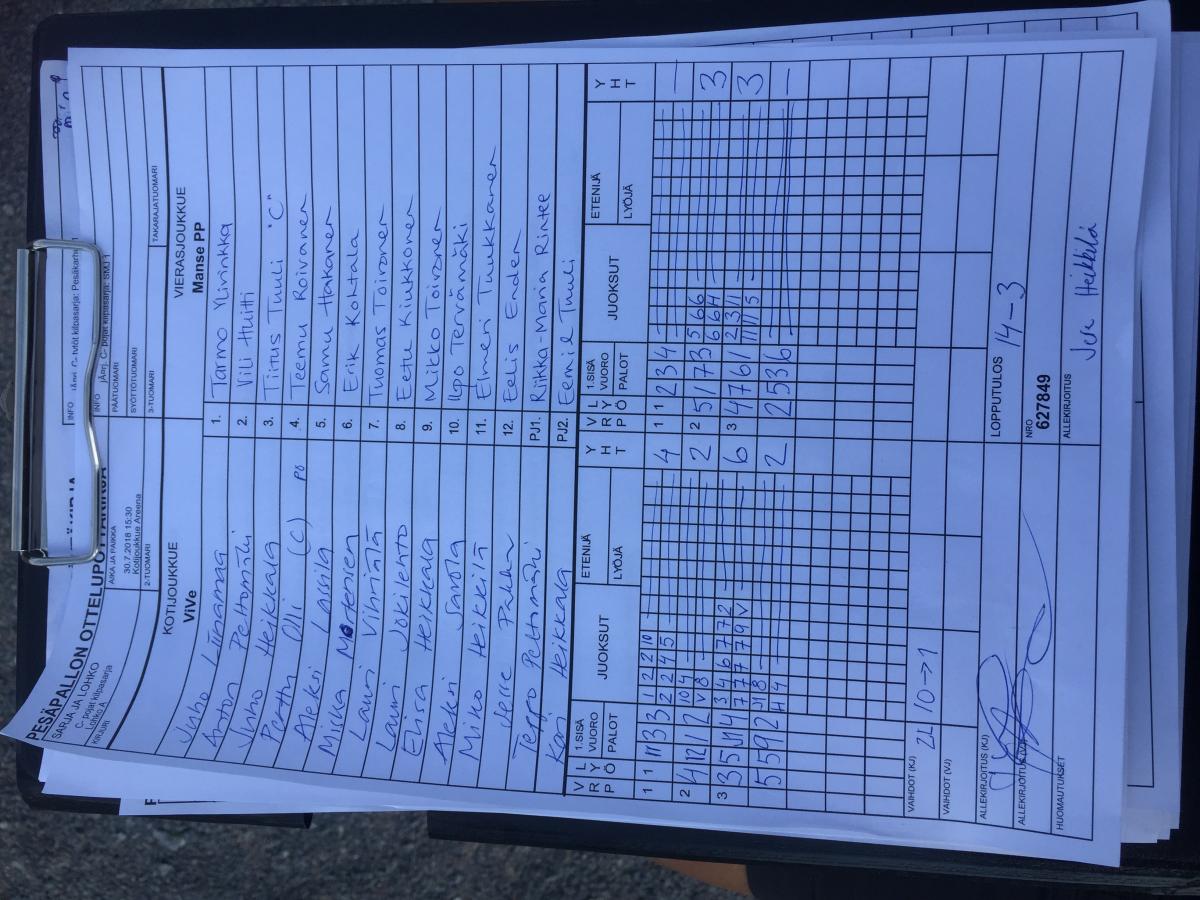 PESÄPALLON OTTELUPÖYTÄKIRJA
SARJA JA LOHKO
C- pojat kilpasarja
Lohko A
KIRJURI
AIKA JA PAIKKA
30.7.2018 15:30
Kotijoukkue Areena
2-TUOMARI
INFO
INFO
PÄÄTUOMARI
SYÖTTÖTUOMARI
3-TUOMARI
TAKARAJATUOMARI
KOTIJOUKKUE
ViVe
VIERASJOUKKUE
Manse PP
Juho Liinamaa 1. Tarmo Ylivinkka
Anton Peltomäki 2. Vili Huitti
Juho Heikkala 3. Tiitus Tuuli "C"
Perttu Olli (C) PO 4. Teemu Roivanen
Aleksi Lassila 5. Samu Hakanen
Miika 6. Erik Kohtala
Lauri Vihriälä 7. Tuomas Toivonen
Lauri Jokilehto 8. Eetu Kiukkonen
Heikkala 9. Mikko Toivonen
Aleksi Savola 10. Ilpo Tervämäki
Miko Heikkilä 11. Elmeri Tuukkanen
12. Eelis Ender
Teppo Peltomäki PJ1. Riikka-Maria Rintee
Kari Heikkala PJ2. Eemil Tuuli
V R P L Y Ö 1.SISÄ VUORO PALOT JUOKSUT ETENIJÄ LYÖJÄ Y H T V R P L Y Ö 1.SISÄ VUORO PALOT JUOKSUT ETENIJÄ LYÖJÄ Y H T
1 1 11 3 3 1 2 2 10 4 1 1 2 3 4 —
2 2 4 5
2 4 12 1 2 10 4 2 2 5 1 7 3 5 6 6 3
V 8 6 6 4
3 3 5 11 4 3 4 6 7 7 2 6 3 4 7 6 1 2 3 1 3
7 7 7 7 9 V 11 11 5
5 5 9 2 11 8 2 2 2 5 3 6 —
H 4
VAIHDOT (KJ) 2L 10→1
VAIHDOT (VJ)
ALLEKIRJOITUS (KJ)
LOPPUTULOS 14-3
ALLEKIRJOITUS (VJ)
NRO
627849
HUOMAUTUKSET
ALLEKIRJOITUS
Jere Heikkilä